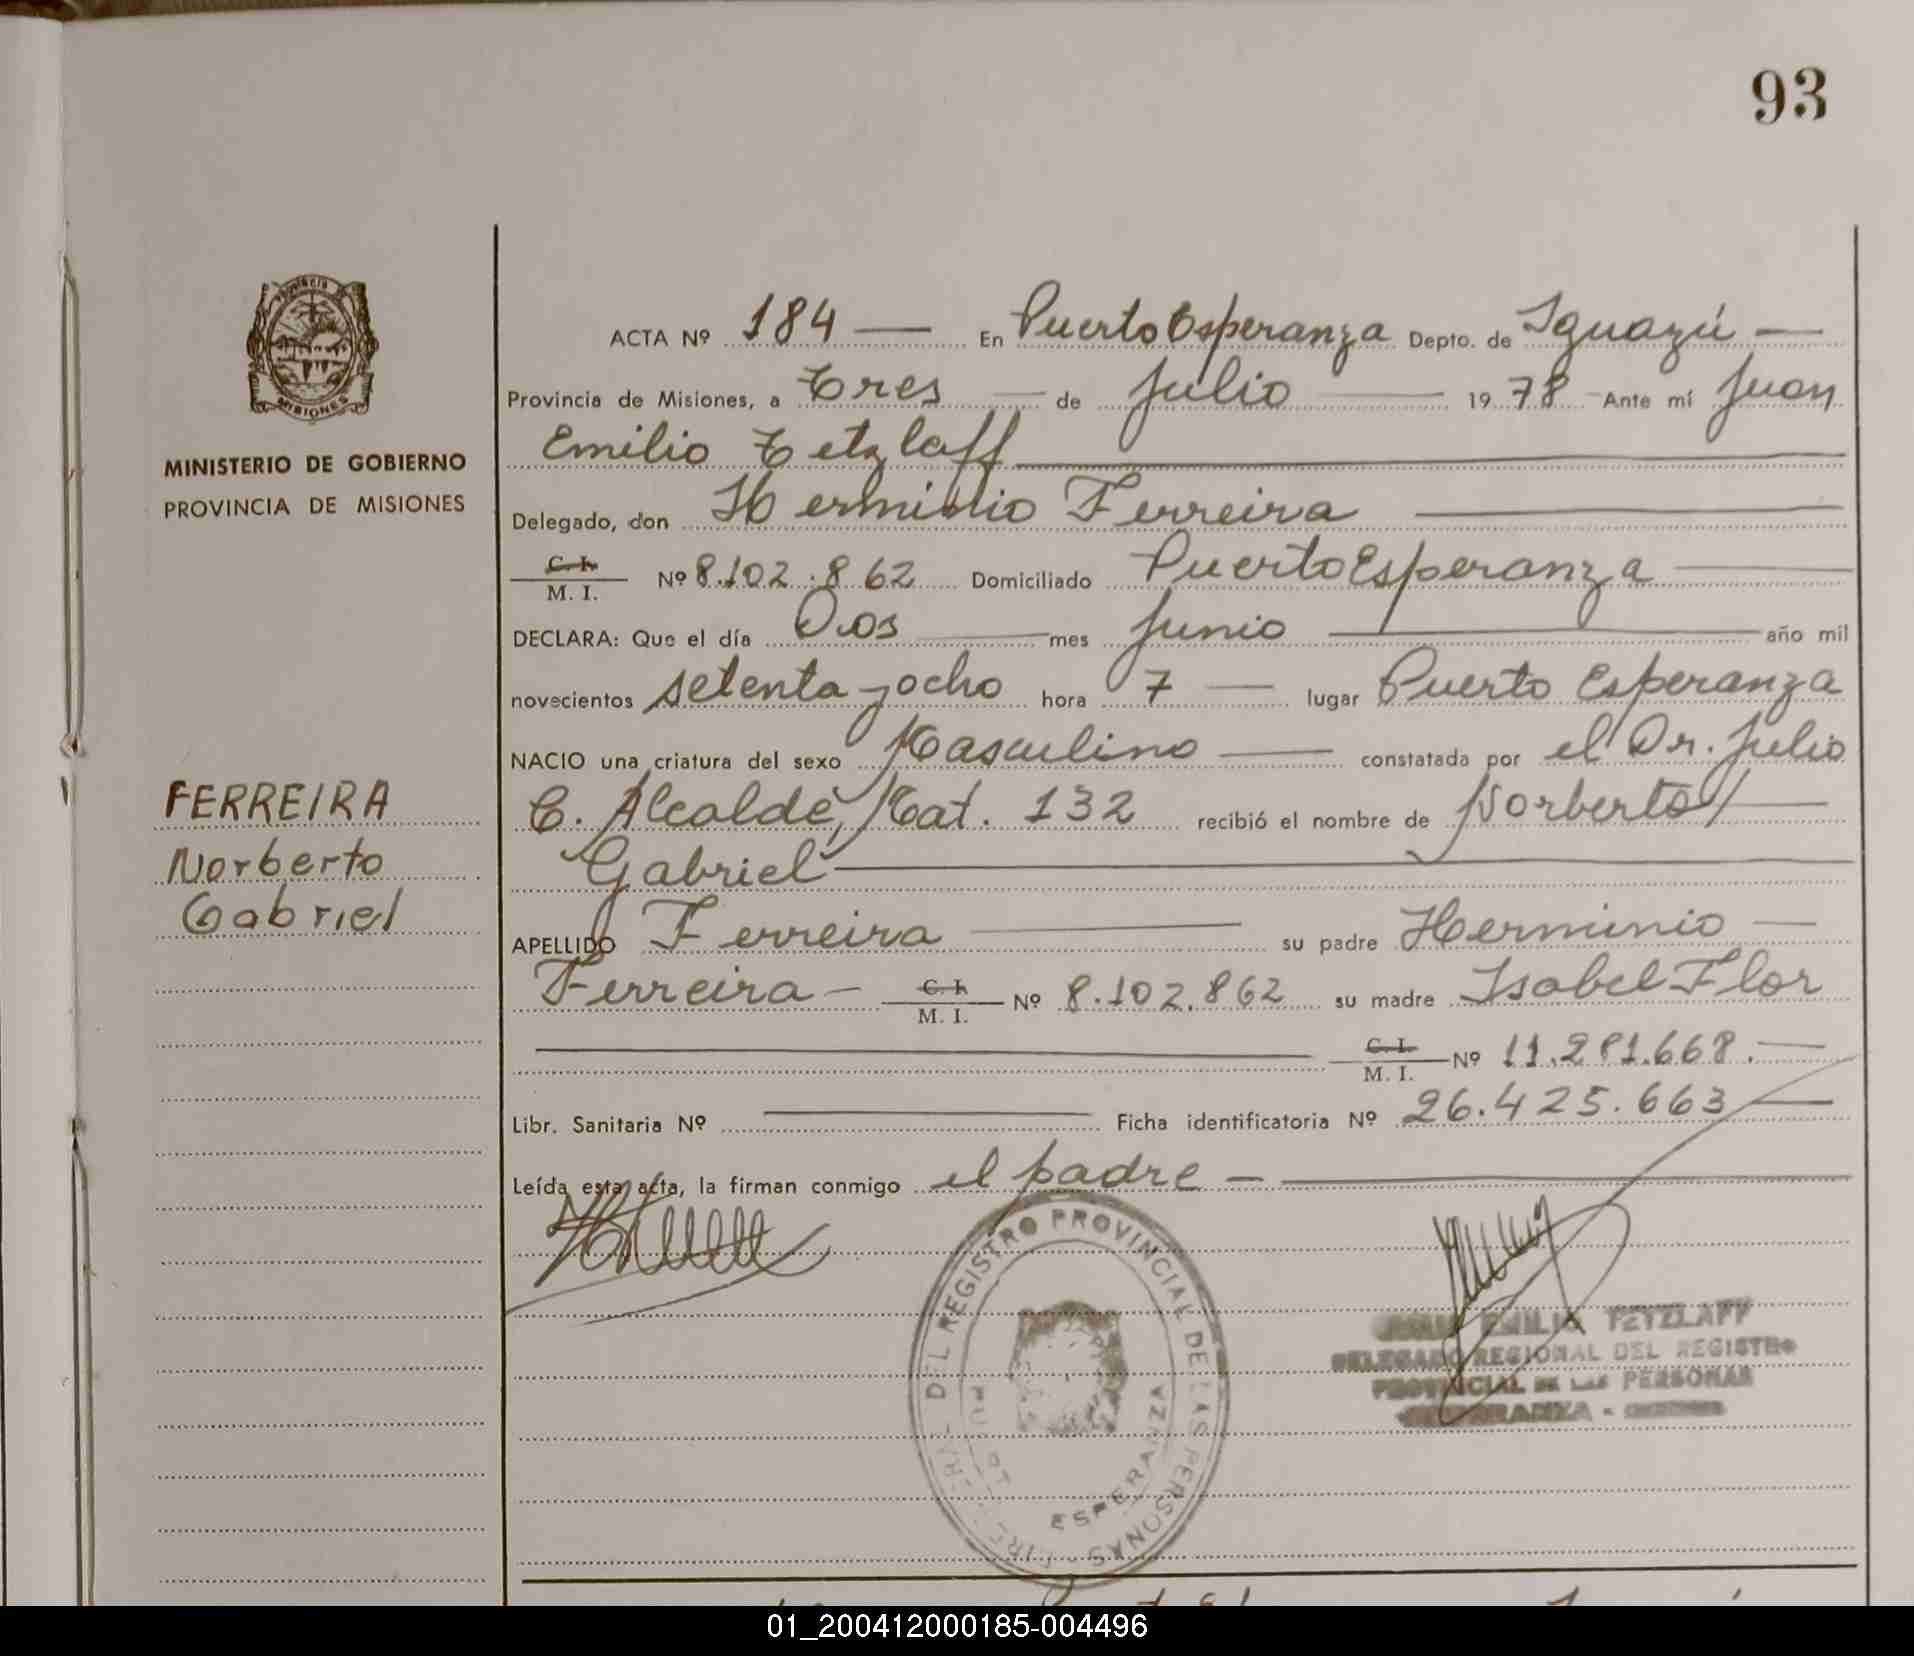 93
ACTA Nº 184 — En Puerto Esperanza Depto. de Iguazú —
Provincia de Misiones, a Tres — de Julio — 1978 Ante mí Juan
Emilio Tetzlaff
MINISTERIO DE GOBIERNO
PROVINCIA DE MISIONES
Delegado, don Herminio Ferreira
C. I. M. I. Nº 8.102.862 Domiciliado Puerto Esperanza
DECLARA: Que el día Dos — mes Junio — año mil
novecientos setenta y ocho hora 7 — lugar Puerto Esperanza
NACIO una criatura del sexo Masculino — constatada por el Dr. Julio
C. Alcalde, Mat. 132 recibió el nombre de Norberto/
Gabriel
FERREIRA
Norberto
Gabriel
APELLIDO Ferreira — su padre Herminio —
Ferreira — C. I. M. I. Nº 8.102.862 su madre Isabel Flor
C. I. M. I. Nº 11.281.668. —
Libr. Sanitaria Nº — Ficha identificatoria Nº 26.425.663 —
Leída esta acta, la firman conmigo el padre —
DEL REGISTRO PROVINCIAL DE LAS PERSONAS
ESPERANZA
JUAN EMILIO TETZLAFF
DELEGADO REGIONAL DEL REGISTRO
PROVINCIAL DE LAS PERSONAS
ESPERANZA -
01_200412000185-004496